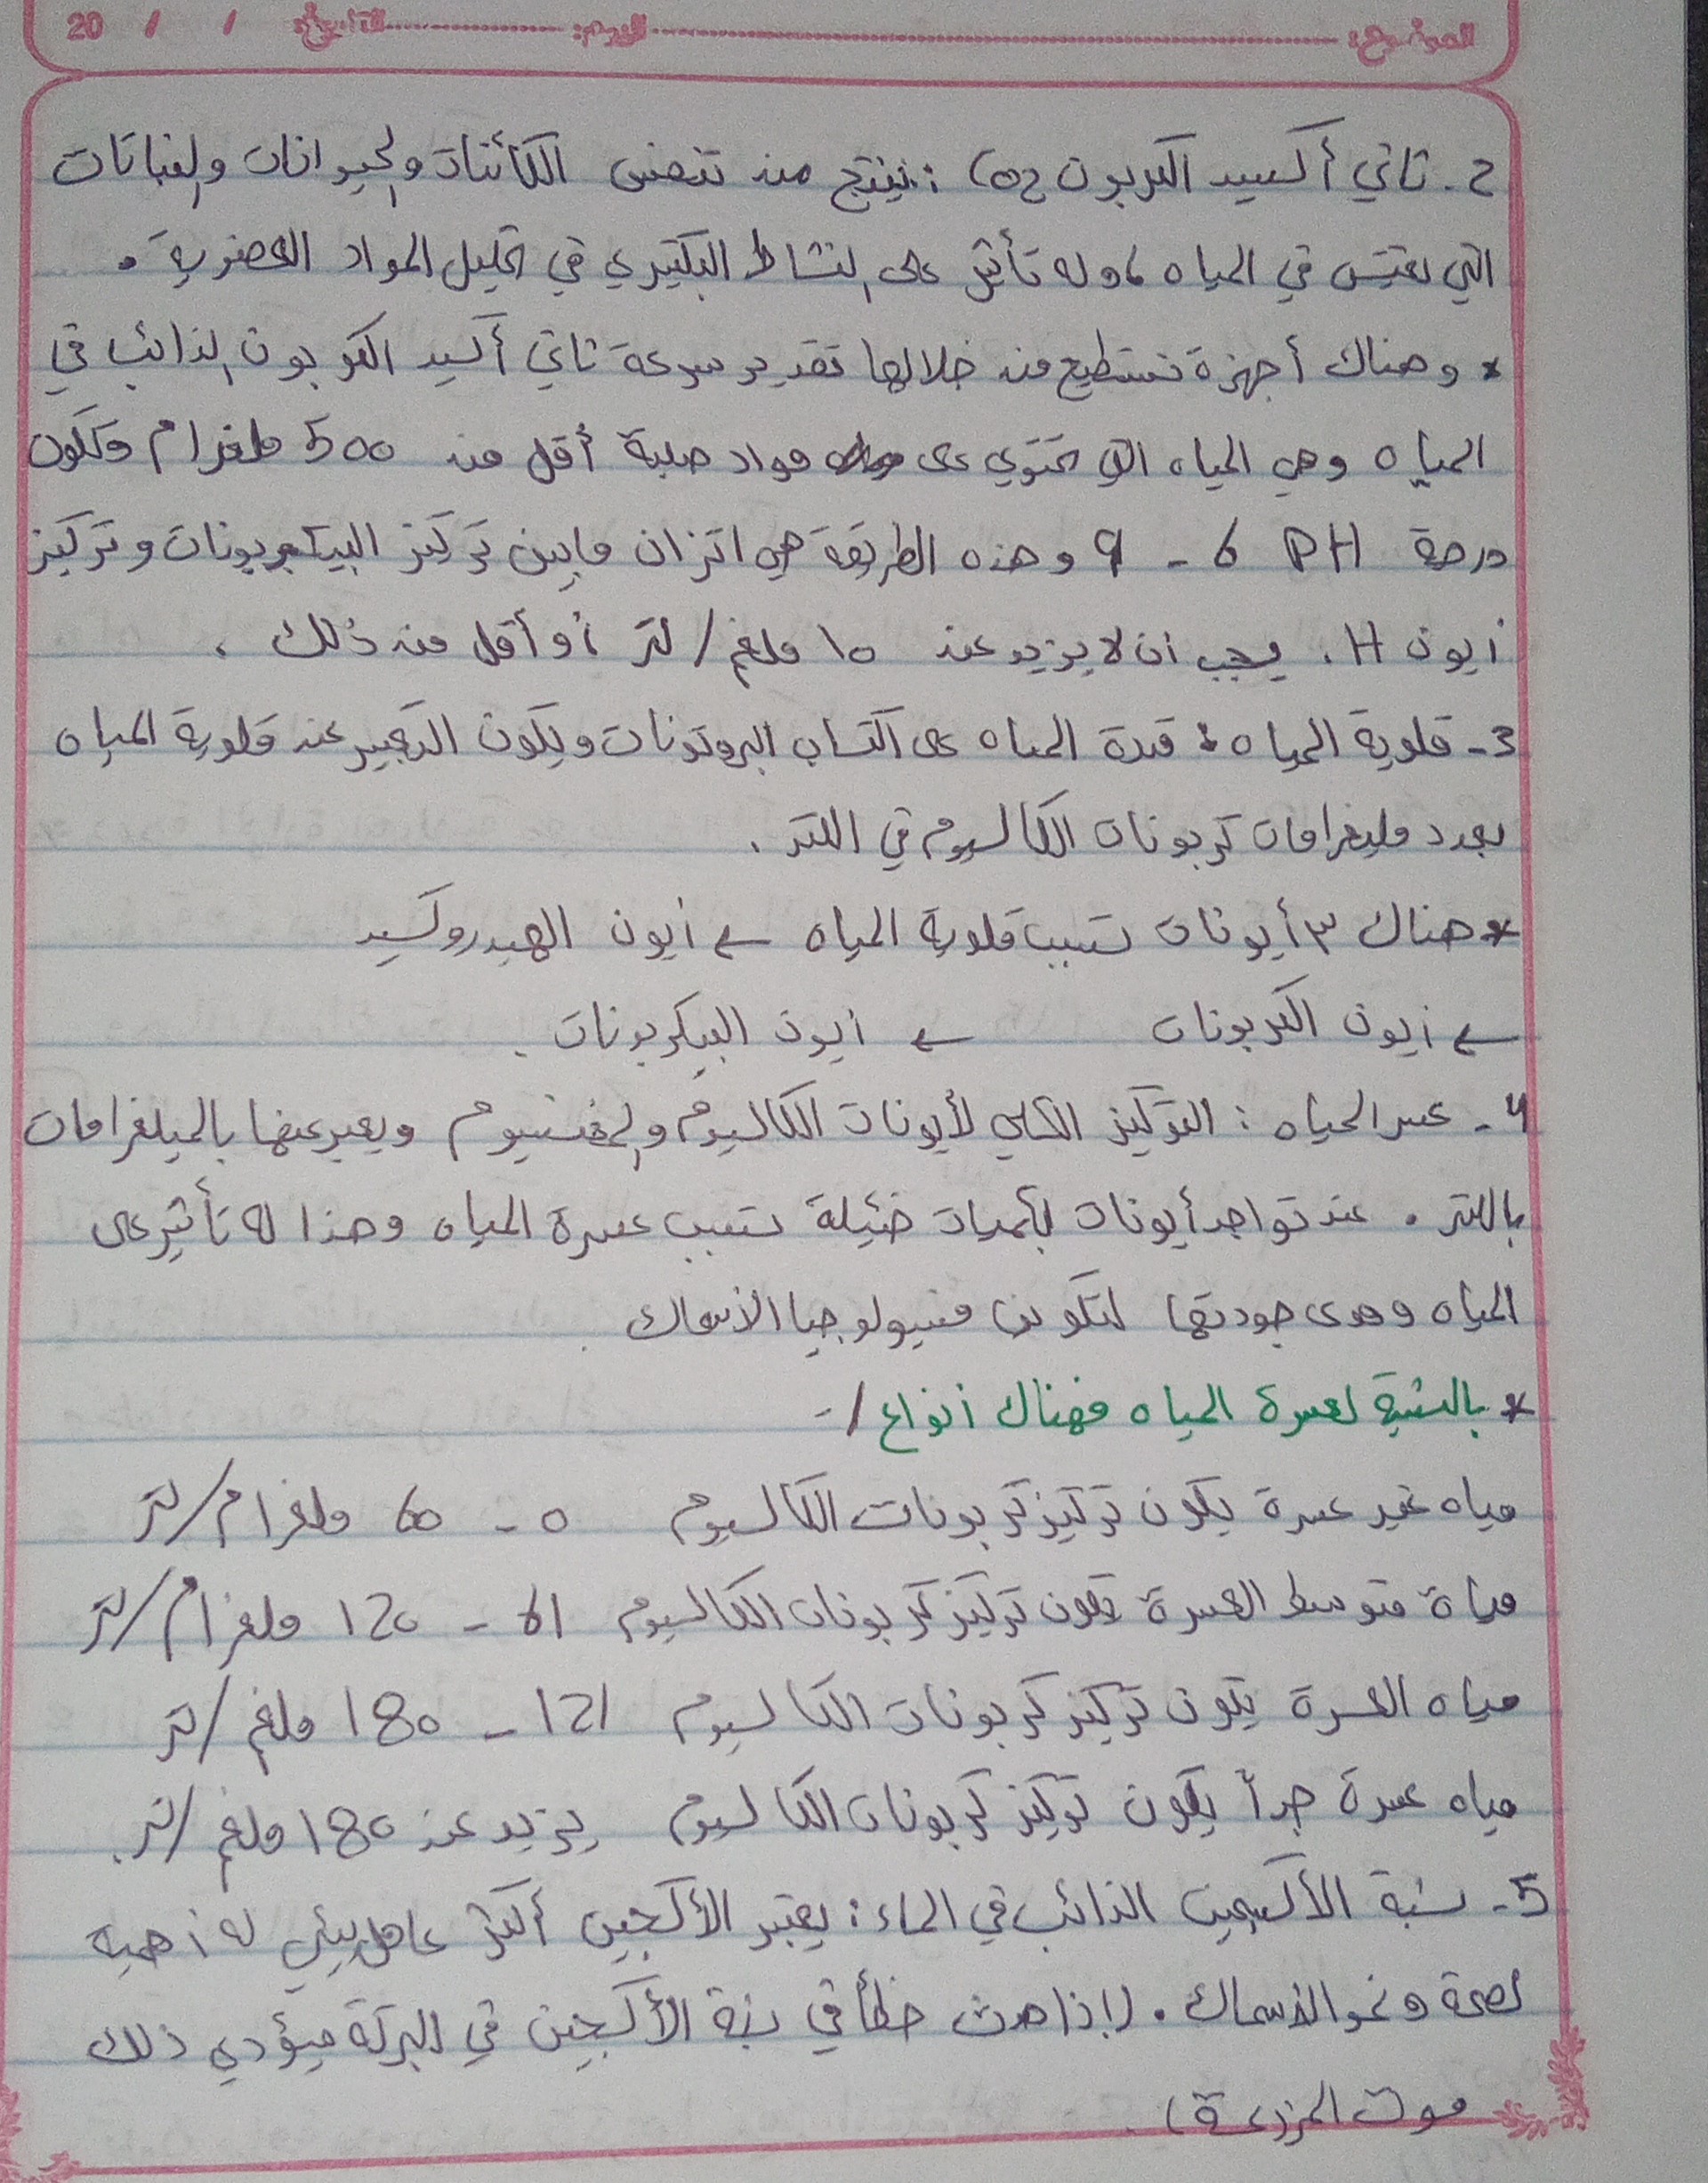 الموضوع: اليوم: التاريخ: / / 20
2- ثاني أكسيد الكربون CO2 : ينتج من تنفس الكائنات والحيوانات والنباتات
التي تعيش في المياه ، وله تأثير على النشاط البكتيري في تحليل المواد العضوية .
* وهناك أجهزة نستطيع من خلالها تقدير سرعة ثاني أكسيد الكربون الذائب في
المياه وهي المياه التي تحتوي على مواد صلبة أقل من 500 ملغرام وتكون
درجة PH 6 - 9 وهذه الطريقة هي اتزان مابين تركيز البيكربونات وتركيز
أيون H . يجب ان لا يزيد عن 10 ملغم / لتر أو أقل من ذلك .
3- قلوية المياه : قدرة المياه على اكتساب البروتونات ويكون التعبير عن قلوية المياه
بعدد مليغرامات كربونات الكالسيوم في اللتر .
* هناك ٣ أيونات تسبب قلوية المياه ← أيون الهيدروكسيد
← أيون الكربونات ← أيون البيكربونات .
4- عسر المياه : التركيز الكلي لأيونات الكالسيوم والمغنسيوم ويعبر عنها بالميلغرامات
باللتر . عند تواجد أيونات بكميات ضئيلة تسبب عسرة المياه وهذا له تأثير على
المياه ومدى جودتها لتكوين فسيولوجيا الأسماك
* بالنسبة لعسرة المياه فهناك أنواع /-
مياه غير عسرة يكون تركيز كربونات الكالسيوم 0 - 60 ملغرام/لتر
مياة متوسط العسرة تكون تركيز كربونات الكالسيوم 61 - 120 ملغرام/لتر
مياه العسرة يكون تركيز كربونات الكالسيوم 121 - 180 ملغم /لتر
مياه عسرة جداً يكون تركيز كربونات الكالسيوم يزيد عن 180 ملغم /لتر.
5- نسبة الأكسجين الذائب في الماء : يعتبر الأكسجين أكثر عامل بيئي له أهمية
لصحة ونمو الاسماك . (إذا حدث خطأ في نسبة الأكسجين في البركة سيؤدي ذلك
موت المزرعة) .